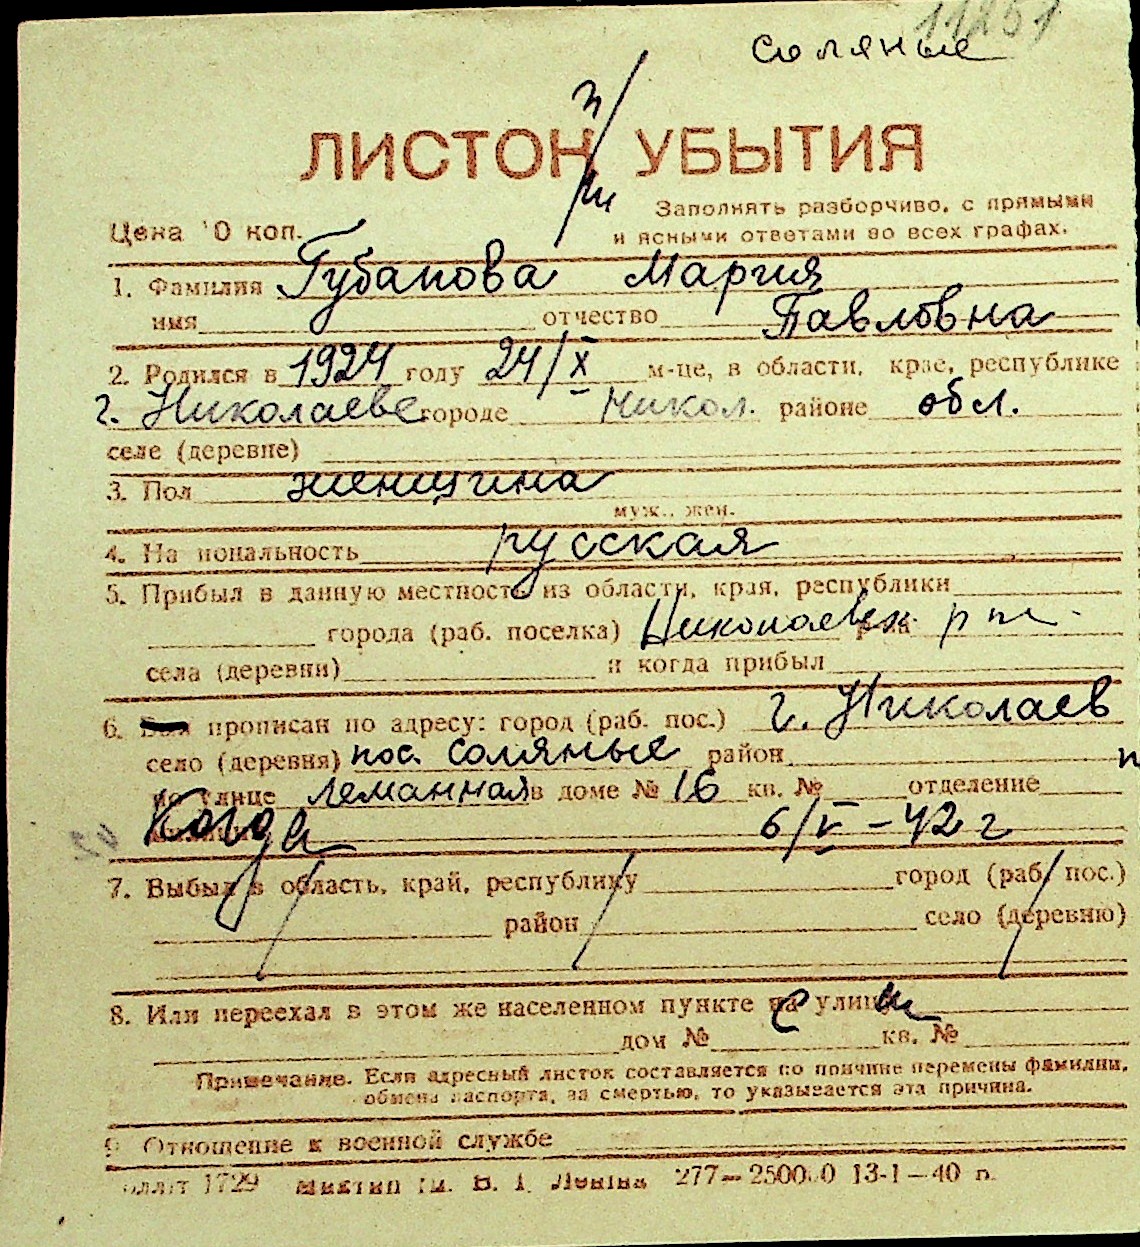 11251
Соляные
ЛИСТОК УБЫТИЯ
Заполнять разборчиво, с прямыми
Цена 10 коп. и ясными ответами во всех графах.
1. Фамилия Губанова Мария
имя отчество Павловна
2. Родился в 1924 году 24/X м-це, в области, крае, республике
г. Николаеве городе Никол. районе обл.
селе (деревне)
3. Пол женщина
муж., жен.
4. Национальность русская
5. Прибыл в данную местность из области, края, республики
города (раб. поселка) Николаевск. р-на
села (деревни) и когда прибыл
6. Был прописан по адресу: город (раб. пос.) г. Николаев
село (деревня) пос. Соляные район
по улице в доме № 16 кв. № отделение
Когда 6/V – 42 г
7. Выбыл в область, край, республику город (раб. пос.)
район село (деревню)
8. Или переехал в этом же населенном пункте на улицу
дом № кв. №
Примечание. Если адресный листок составляется по причине перемены фамилии,
обмена паспорта, за смертью, то указывается эта причина.
9. Отношение к военной службе
1729 277—250000 13-1—40 р.